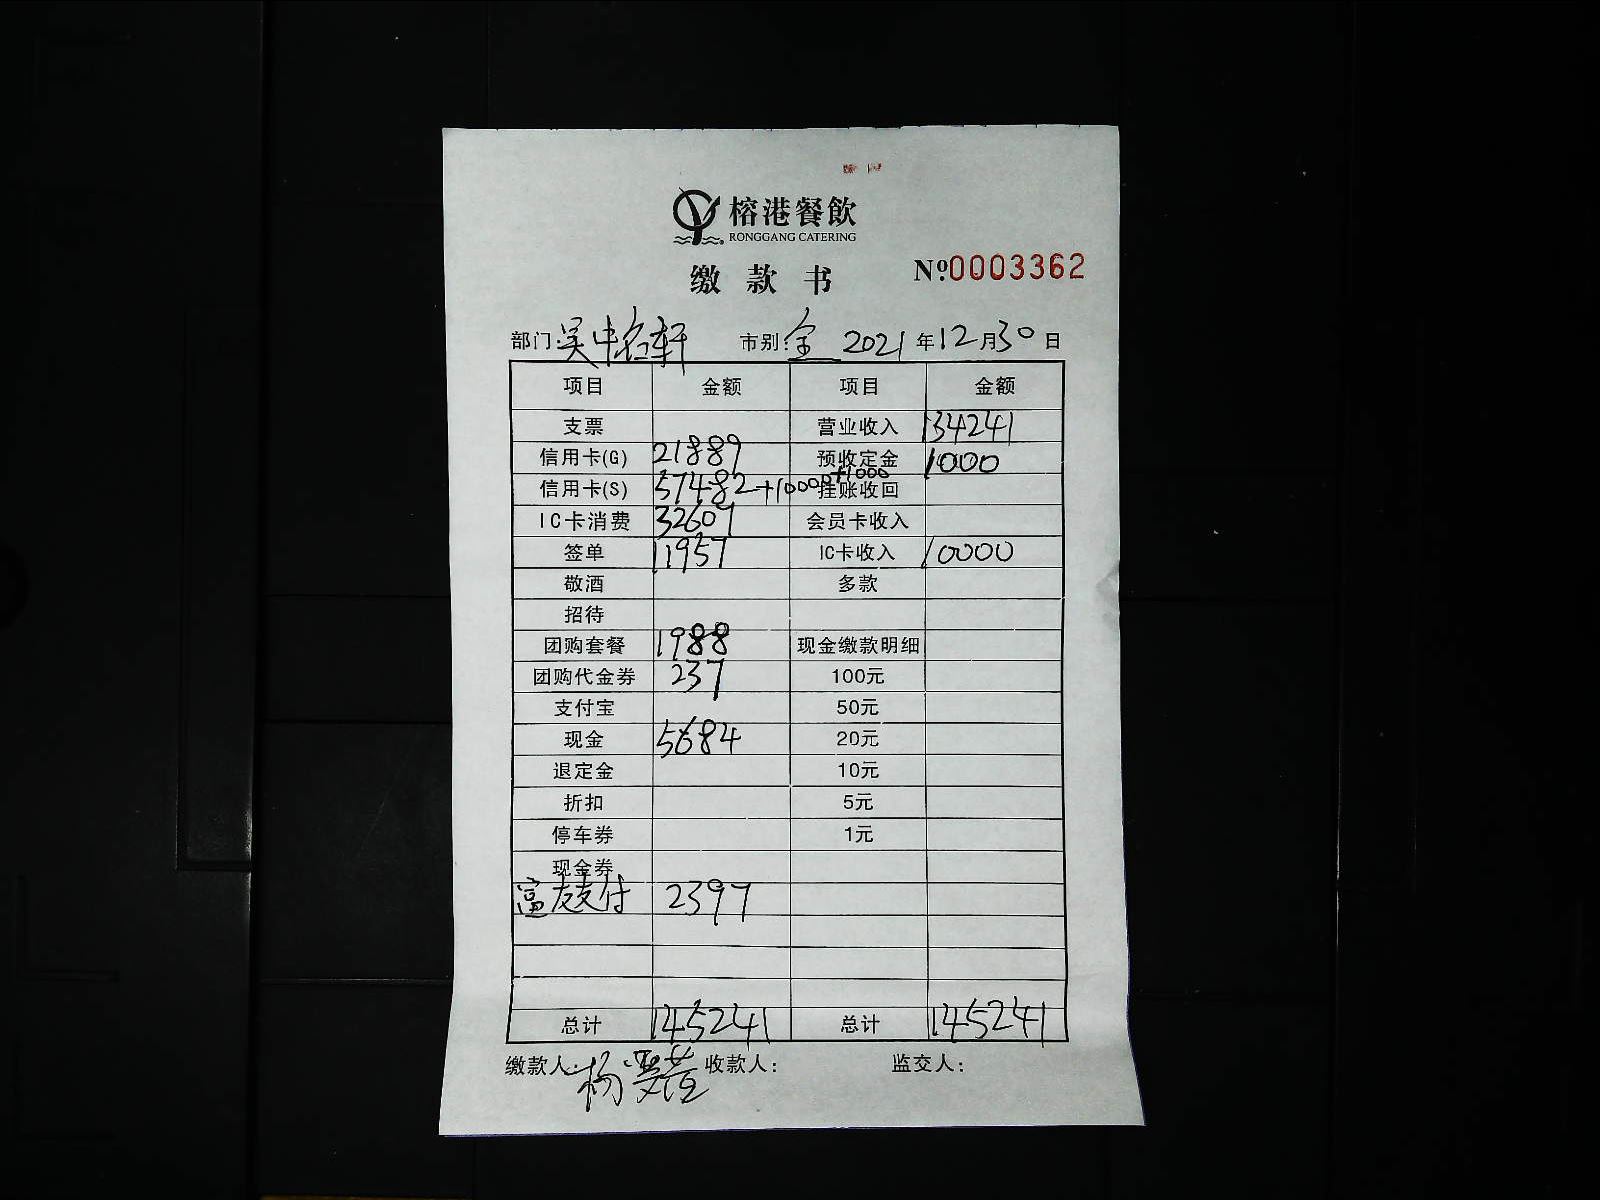 榕港餐飲
RONGGANG CATERING
缴款书 Nº:0003362
部门:吴中名轩 市别:全 2021年12月30日
项目 金额 项目 金额
支票 营业收入 134241
信用卡(G) 21889 预收定金 1000
信用卡(S) 57482+10000+1000 挂账收回
IC卡消费 32607 会员卡收入
签单 11957 IC卡收入 10000
敬酒 多款
招待
团购套餐 1988 现金缴款明细
团购代金券 237 100元
支付宝 50元
现金 5684 20元
退定金 10元
折扣 5元
停车券 1元
现金券
富友支付 2397
总计 145241 总计 145241
缴款人:杨 收款人: 监交人: